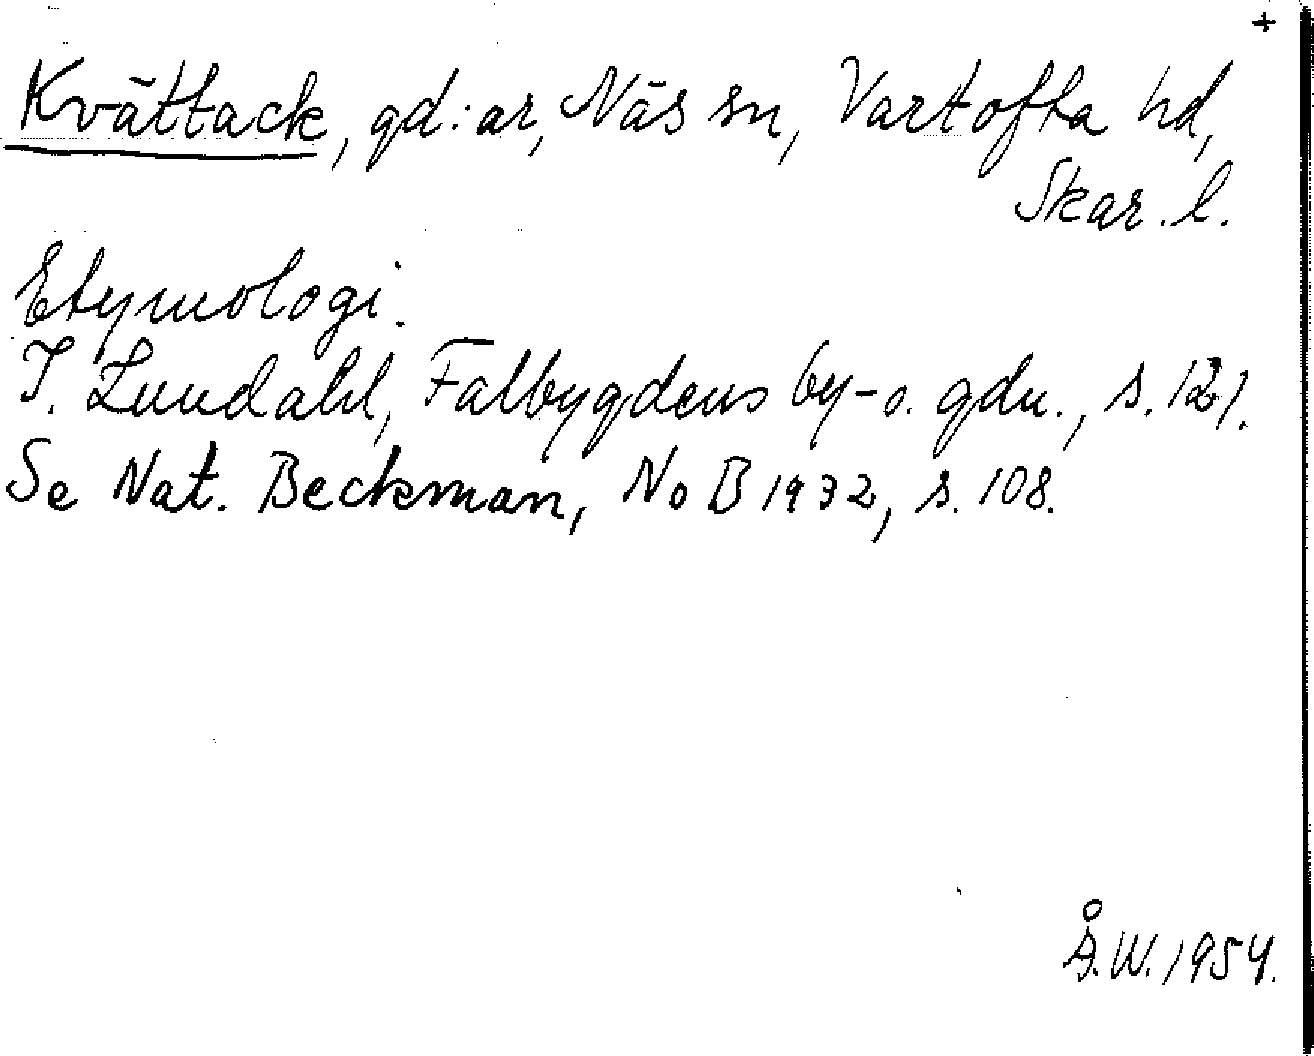 +
Kvättack, gd:ar, Näs sn, Vartofta hd,
Skar. l.
Etymologi.
I. Lundahl, Falbygdens by- o. gdn., s. 121.
Se Nat. Beckman, NoB 1932, s. 108.
Å.W. 1954.